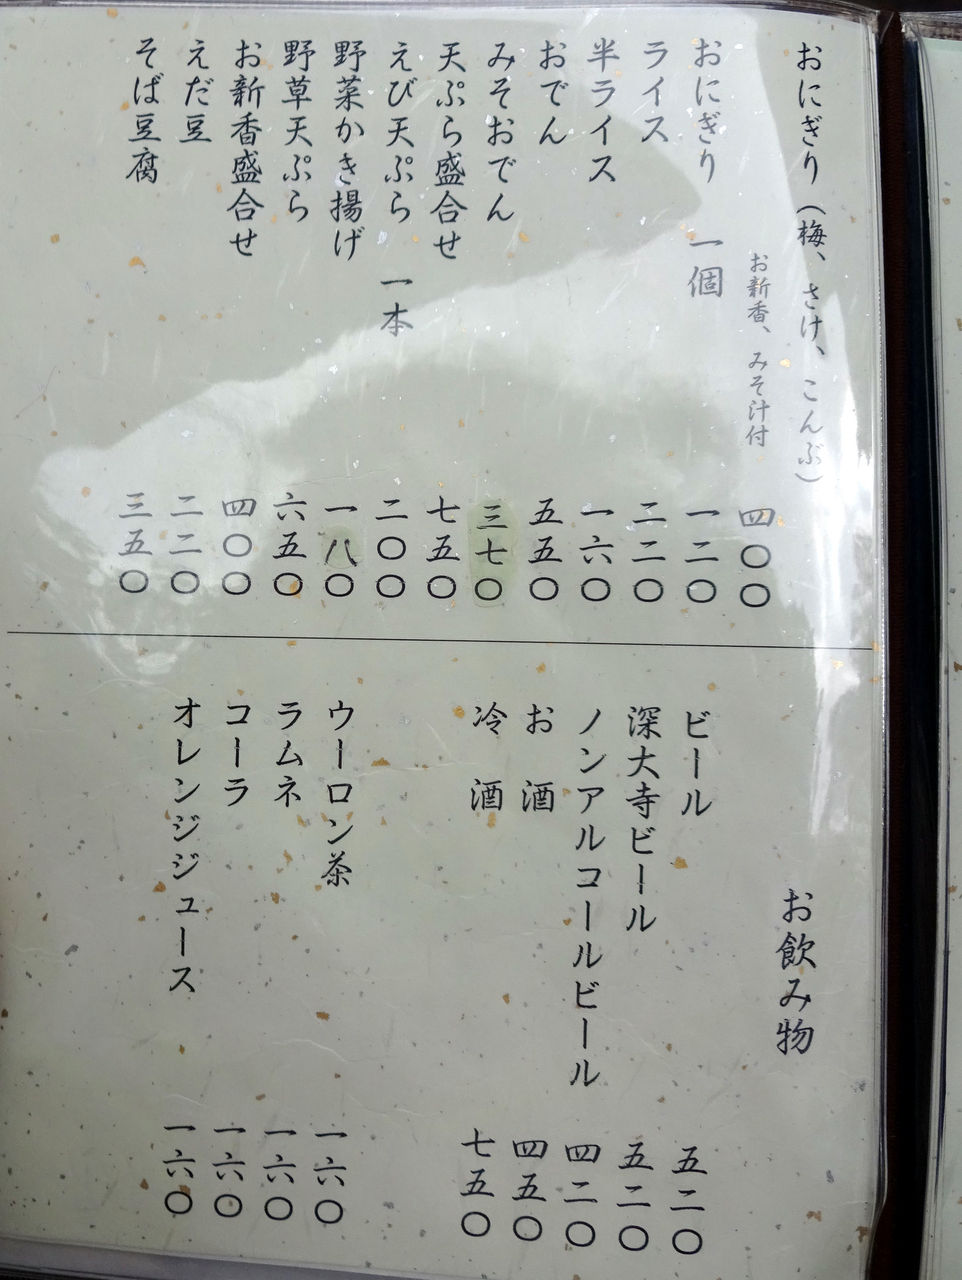 おにぎり（梅、さけ、こんぶ）
お新香、みそ汁付 四〇〇
おにぎり 一個 一二〇
ライス 二二〇
半ライス 一六〇
おでん 五五〇
みそおでん 三七〇
天ぷら盛合せ 七五〇
えび天ぷら 一本 二〇〇
野菜かき揚げ 一八〇
野草天ぷら 六五〇
お新香盛合せ 四〇〇
えだ豆 二二〇
そば豆腐 三五〇
お飲み物
ビール 五二〇
深大寺ビール 五二〇
ノンアルコールビール 四二〇
お酒 四五〇
冷酒 七五〇
ウーロン茶 一六〇
ラムネ 一六〇
コーラ 一六〇
オレンジジュース 一六〇